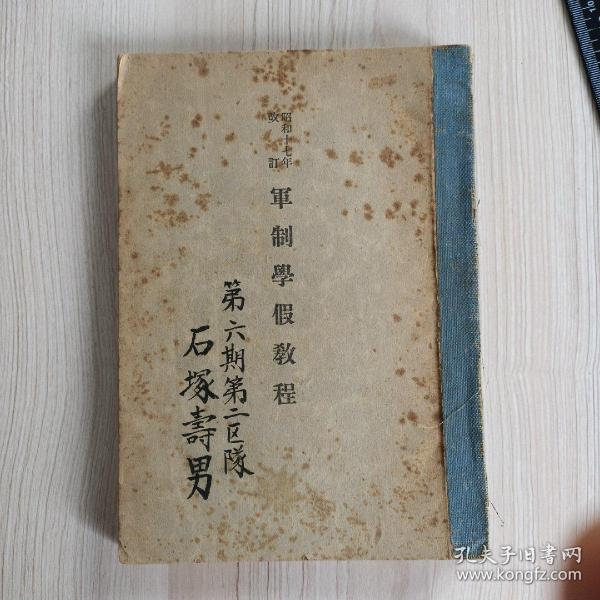 昭和十七年
改訂
軍制學假教程
第六期第二区隊
石塚壽男
孔夫子旧书网
www.kongfz.com